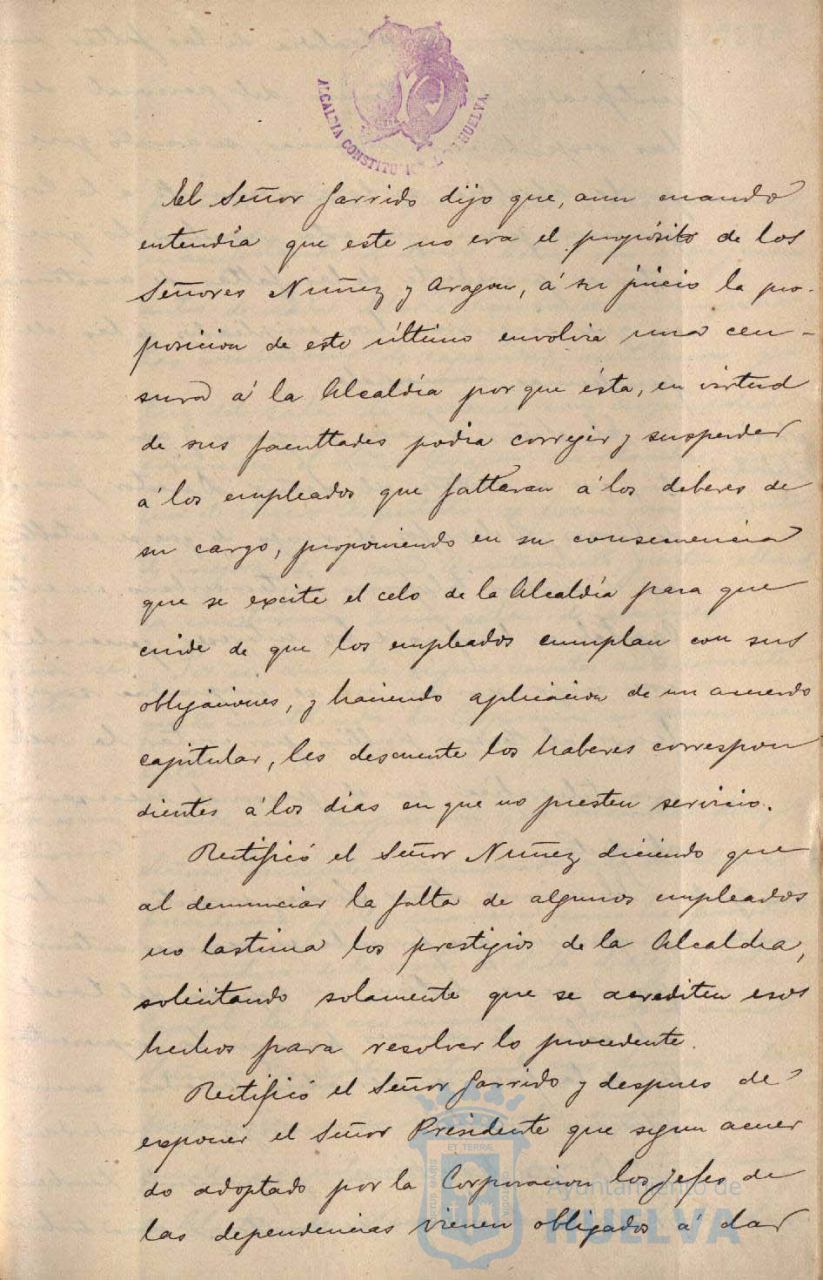 ALCALDIA CONSTITU HUELVA.
El Señor Garrido dijo que, aun cuando
entendía que este no era el propósito de los
Señores Nuñez y Aragon, á su juicio la pro-
posicion de este último envolvia una cen-
sura á la Alcaldía por que ésta, en virtud
de sus facultades podia correjir y suspender
á los empleados que faltaran á los deberes de
su cargo, proponiendo en su consecuencia
que se excite el celo de la Alcaldía para que
cuide de que los empleados cumplan con sus
obligaciones, y haciendo aplicacion de un acuerdo
capitular, les descuente los haberes correspon
dientes á los dias en que no presten servicio.
Rectificó el Señor Nuñez diciendo que
al denunciar la falta de algunos empleados
no lastima los prestigios de la Alcaldia,
solicitando solamente que se acrediten esos
hechos para resolver lo procedente.
Rectificó el Señor Garrido y despues de
exponer el Señor Presidente que segun acuer
do adoptado por la Corporacion los jefes de
las dependencias vienen obligados á dar
Ayuntamiento de
HUELVA